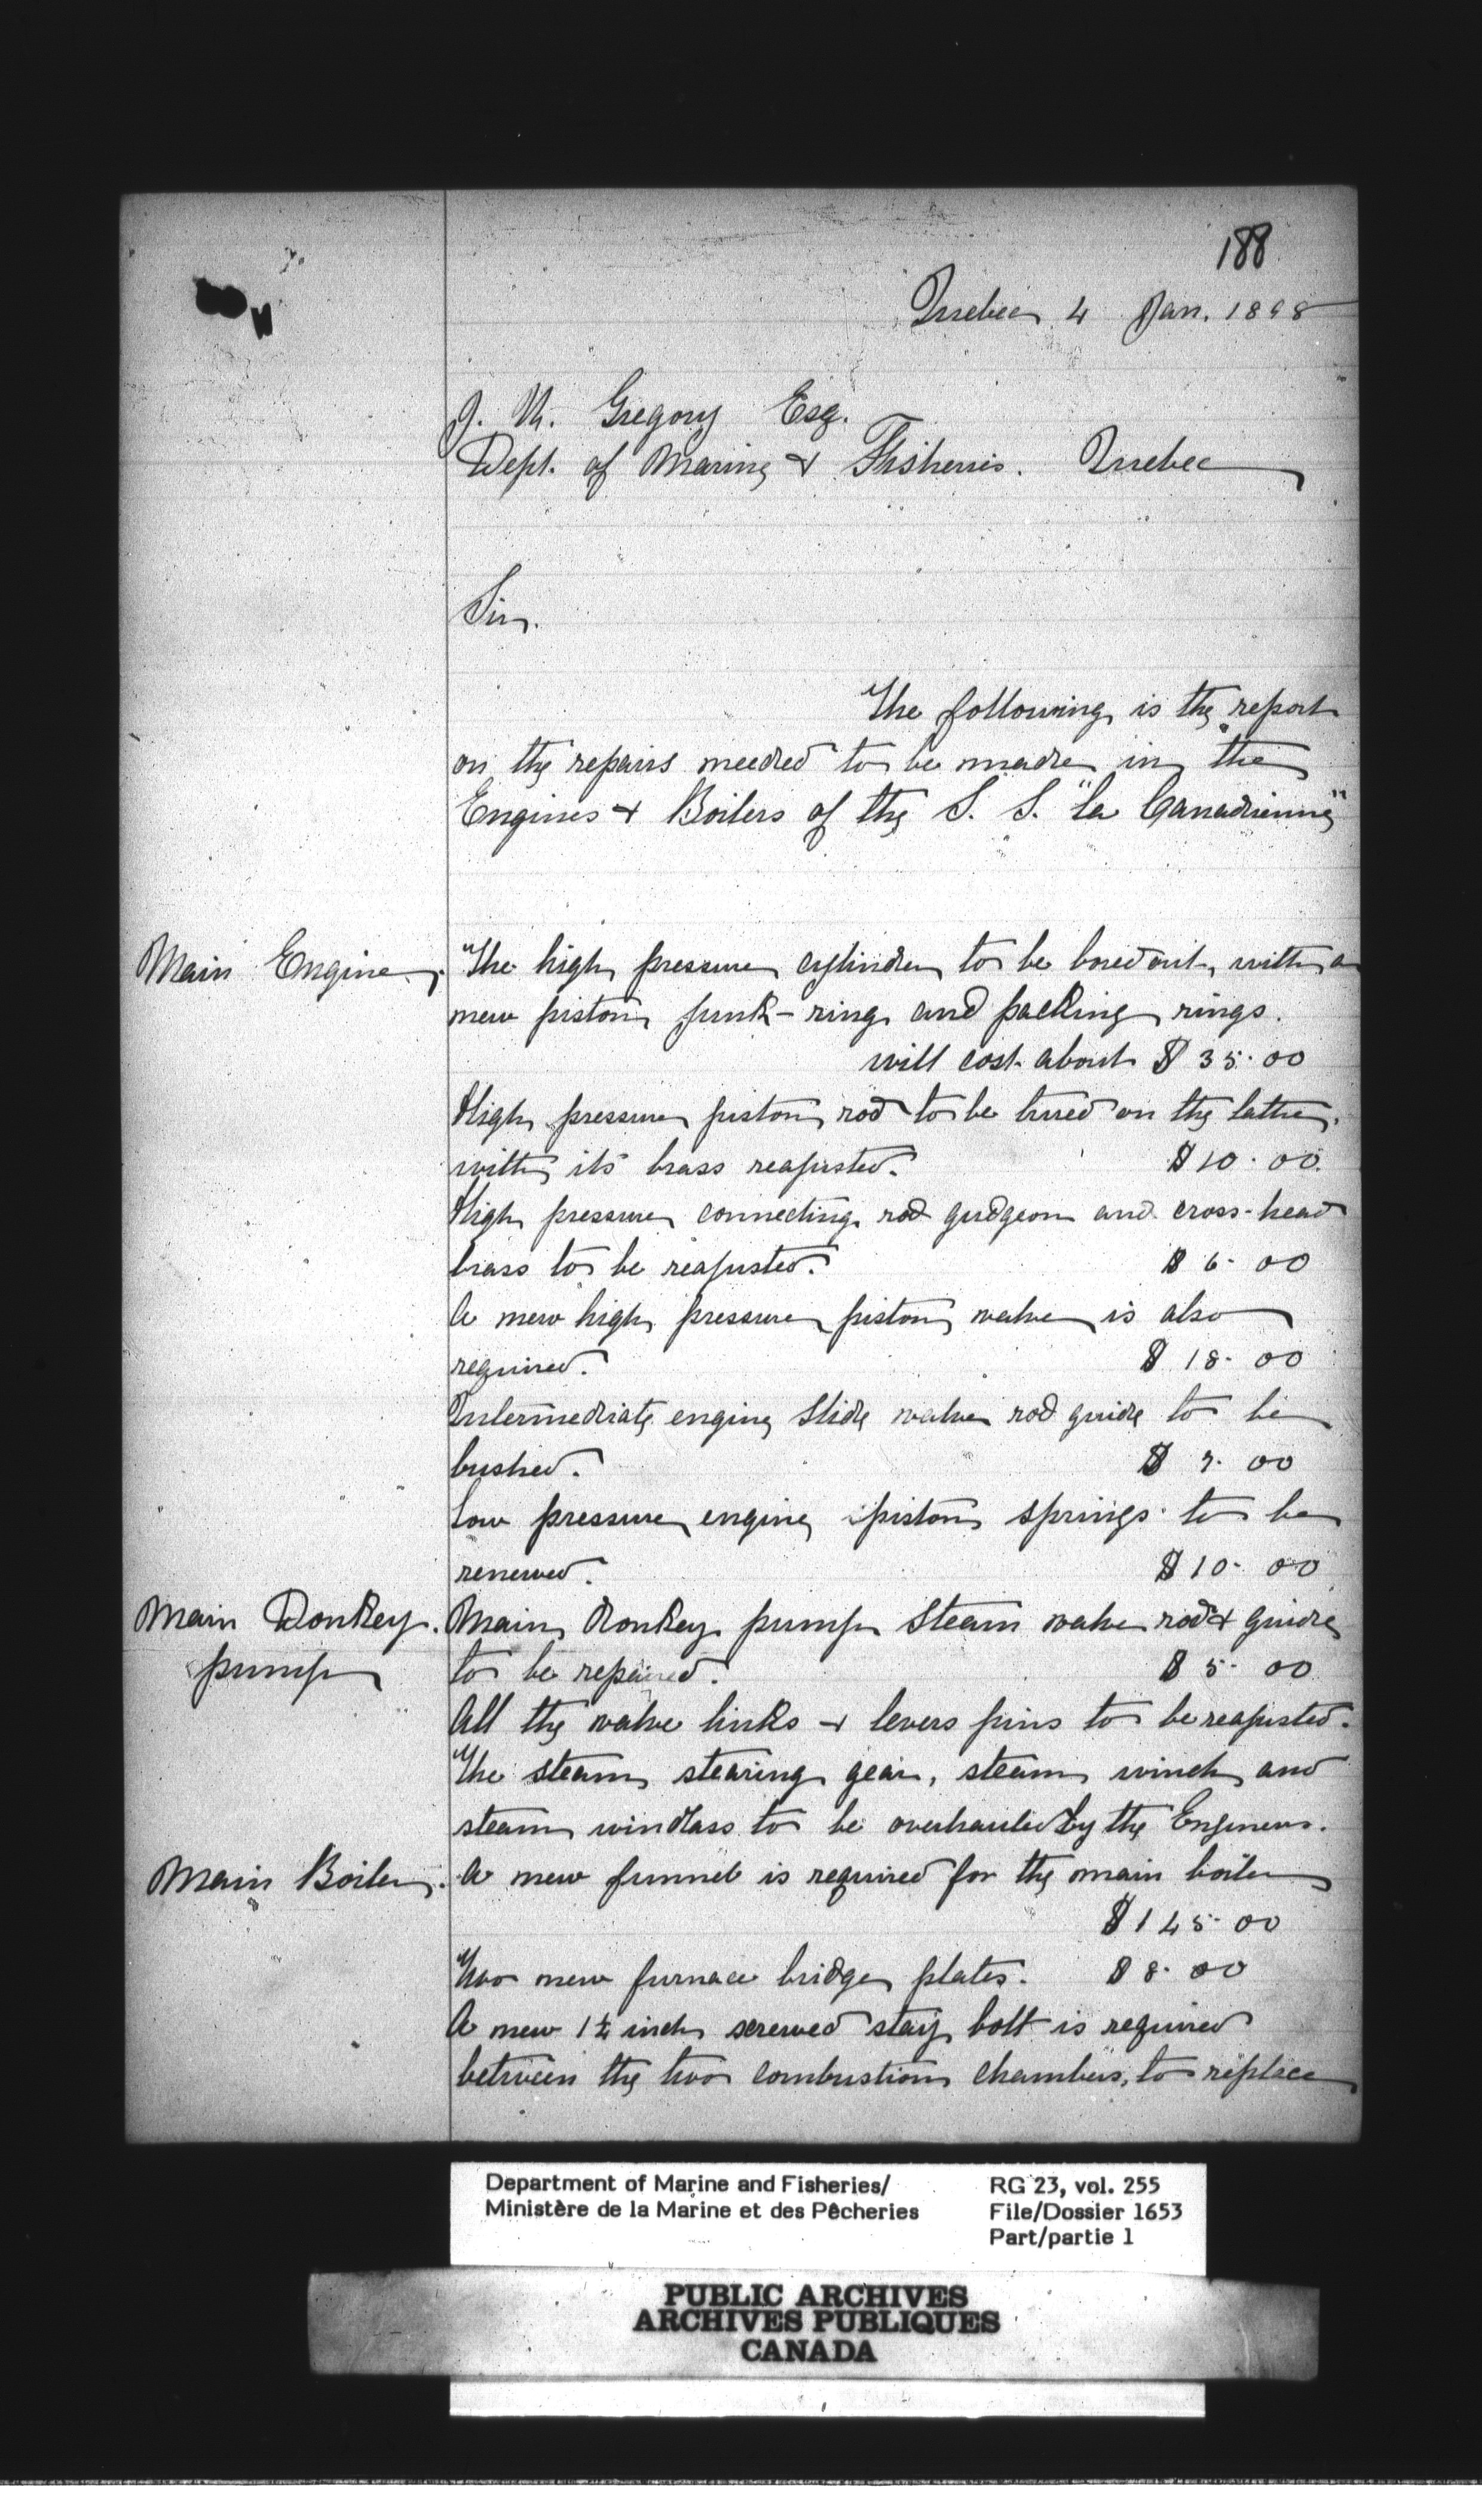 188
Quebec 4 Jan. 1898
J. U. Gregory Esq.
Dept. of Marine & Fisheries. Quebec
Sir.
The following is the report
on the repairs needed to be made in the
Engines & Boilers of the S. S. "La Canadienne"
Main Engine. The high pressure cylinder to be bored out, with a
new piston junk-ring and packing rings.
will cost about $ 35.00
High pressure piston rod to be turned on the lathe,
with its brass reajusted. $ 10.00
High pressure connecting rod gudgeon and cross-head
brass to be reajusted. $ 6.00
A new high pressure piston valve is also
required. $ 18.00
Intermediate engine slide valve rod guide to be
bushed. $ 7.00
Low pressure engine piston springs to be
renewed. $ 10.00
Main Donkey. Main Donkey pump steam valve rod & guide
pump to be repaired. $ 5.00
All the valve links & levers pins to be reajusted.
The steam stearing gear, steam winch and
steam windlass to be overhauled by the Engineers.
Main Boiler. A new funnel is required for the main boiler
$ 145.00
Two new furnace bridge plates. $ 8.00
A new 1¼ inch screwed stay bolt is required
between the two combustion chambers, to replace
Department of Marine and Fisheries/ RG 23, vol. 255
Ministère de la Marine et des Pêcheries File/Dossier 1653
Part/partie 1
PUBLIC ARCHIVES
ARCHIVES PUBLIQUES
CANADA